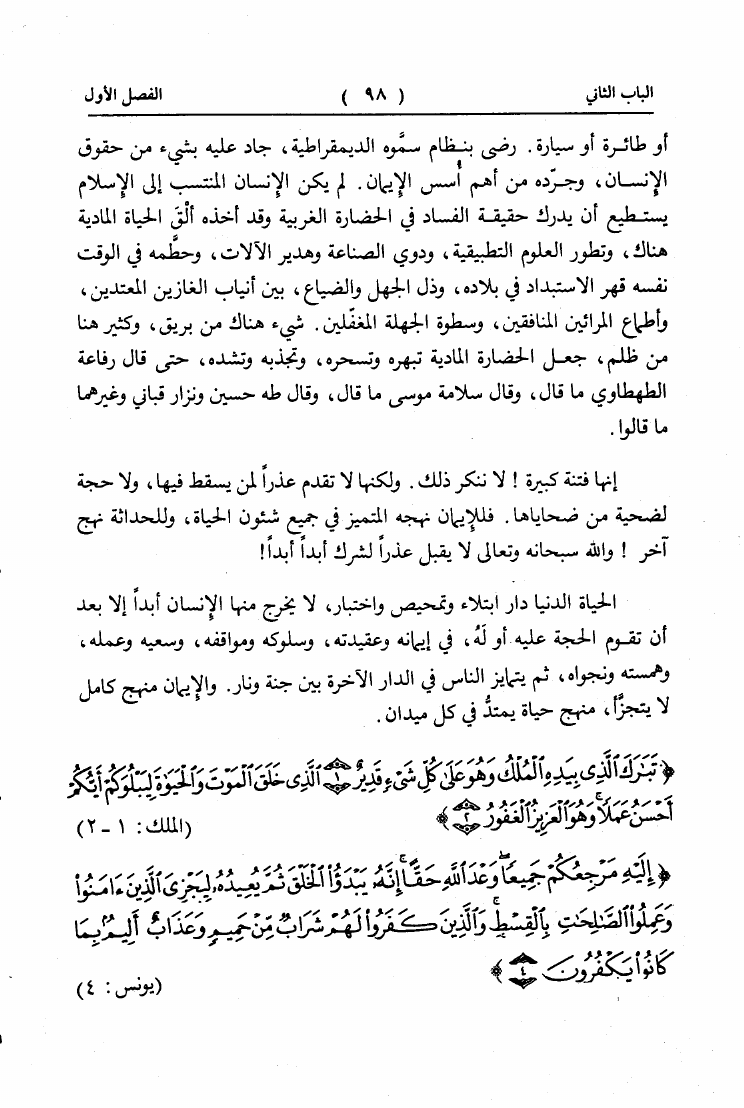 الباب الثاني ( ٩٨ ) الفصل الأول
أو طائرة أو سيارة. رضى بنظام سمَّوه الديمقراطية، جاد عليه بشيء من حقوق
الإنسان، وجرّده من أهم أُسس الإيمان. لم يكن الإنسان المنتسب إلى الإسلام
يستطيع أن يدرك حقيقة الفساد في الحضارة الغربية وقد أخذه ألْقَ الحياة المادية
هناك، وتطور العلوم التطبيقية، ودوي الصناعة وهدير الآلات، وحطَّمه في الوقت
نفسه قهر الاستبداد في بلاده، وذل الجهل والضياع، بين أنياب الغازين المعتدين،
وأطماع المرائين المنافقين، وسطوة الجهلة المغفّلين. شيء هناك من بريق، وكثير هنا
من ظلم، جعل الحضارة المادية تبهره وتسحره، وتجذبه وتشده، حتى قال رفاعة
الطهطاوي ما قال، وقال سلامة موسى ما قال، وقال طه حسين ونزار قباني وغيرهما
ما قالوا.
إنها فتنة كبيرة ! لا ننكر ذلك. ولكنها لا تقدم عذراً لمن يسقط فيها، ولا حجة
لضحية من ضحاياها. فللإيمان نهجه المتميز في جميع شئون الحياة، وللحداثة نهج
آخر ! والله سبحانه وتعالى لا يقبل عذراً لشرك أبداً أبداً!
الحياة الدنيا دار ابتلاء وتمحيص واختبار، لا يخرج منها الإنسان أبداً إلا بعد
أن تقوم الحجة عليه أو لَهُ، في إيمانه وعقيدته، وسلوكه ومواقفه، وسعيه وعمله،
وهمسته ونجواه، ثم يتمايز الناس في الدار الآخرة بين جنة ونار. والإيمان منهج كامل
لا يتجزَّأ، منهج حياة يمتدُّ في كل ميدان.
﴿ تَبَٰرَكَ ٱلَّذِى بِيَدِهِ ٱلْمُلْكُ وَهُوَ عَلَىٰ كُلِّ شَىْءٍ قَدِيرٌ ١ ٱلَّذِى خَلَقَ ٱلْمَوْتَ وَٱلْحَيَوٰةَ لِيَبْلُوَكُمْ أَيُّكُمْ
أَحْسَنُ عَمَلًا ۚ وَهُوَ ٱلْعَزِيزُ ٱلْغَفُورُ ٢ ﴾ (الملك: ١ - ٢)
﴿ إِلَيْهِ مَرْجِعُكُمْ جَمِيعًا ۖ وَعْدَ ٱللَّهِ حَقًّا ۚ إِنَّهُۥ يَبْدَؤُا۟ ٱلْخَلْقَ ثُمَّ يُعِيدُهُۥ لِيَجْزِىَ ٱلَّذِينَ ءَامَنُوا۟
وَعَمِلُوا۟ ٱلصَّٰلِحَٰتِ بِٱلْقِسْطِ ۚ وَٱلَّذِينَ كَفَرُوا۟ لَهُمْ شَرَابٌ مِّنْ حَمِيمٍ وَعَذَابٌ أَلِيمٌۢ بِمَا
كَانُوا۟ يَكْفُرُونَ ٤ ﴾ (يونس: ٤)